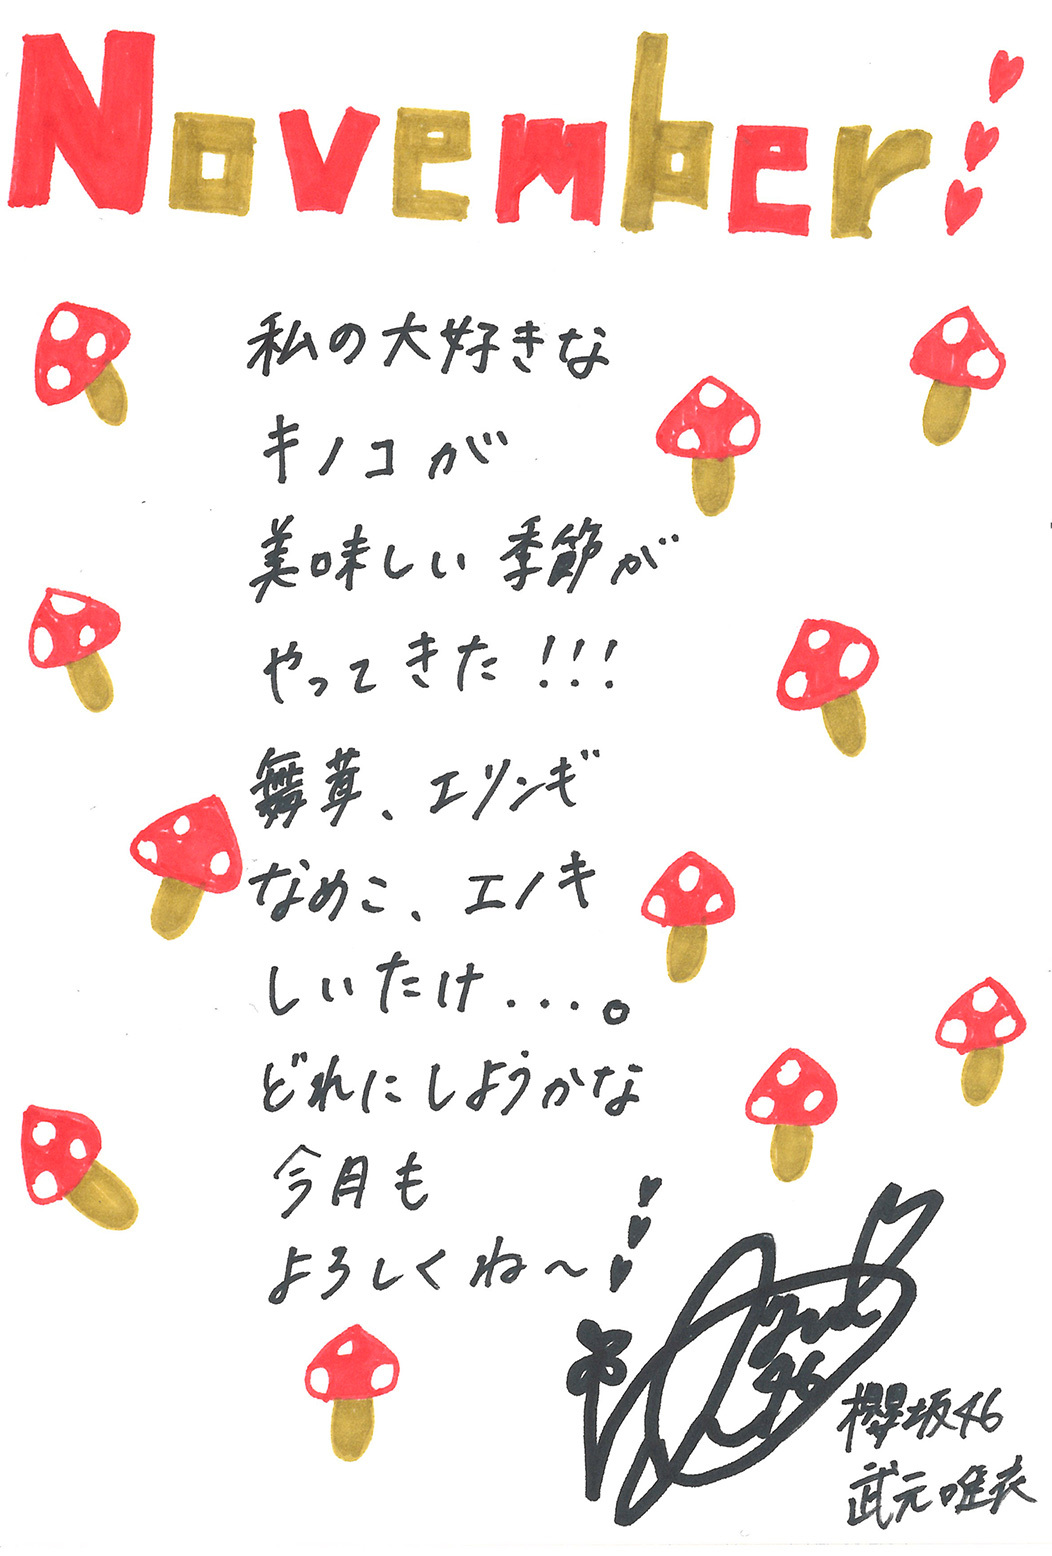 November
私の大好きな
キノコが
美味しい季節が
やってきた!!!
舞茸、エリンギ
なめこ、エノキ
しいたけ....。
どれにしようかな
今月も
よろしくね〜
46
櫻坂46
武元唯衣